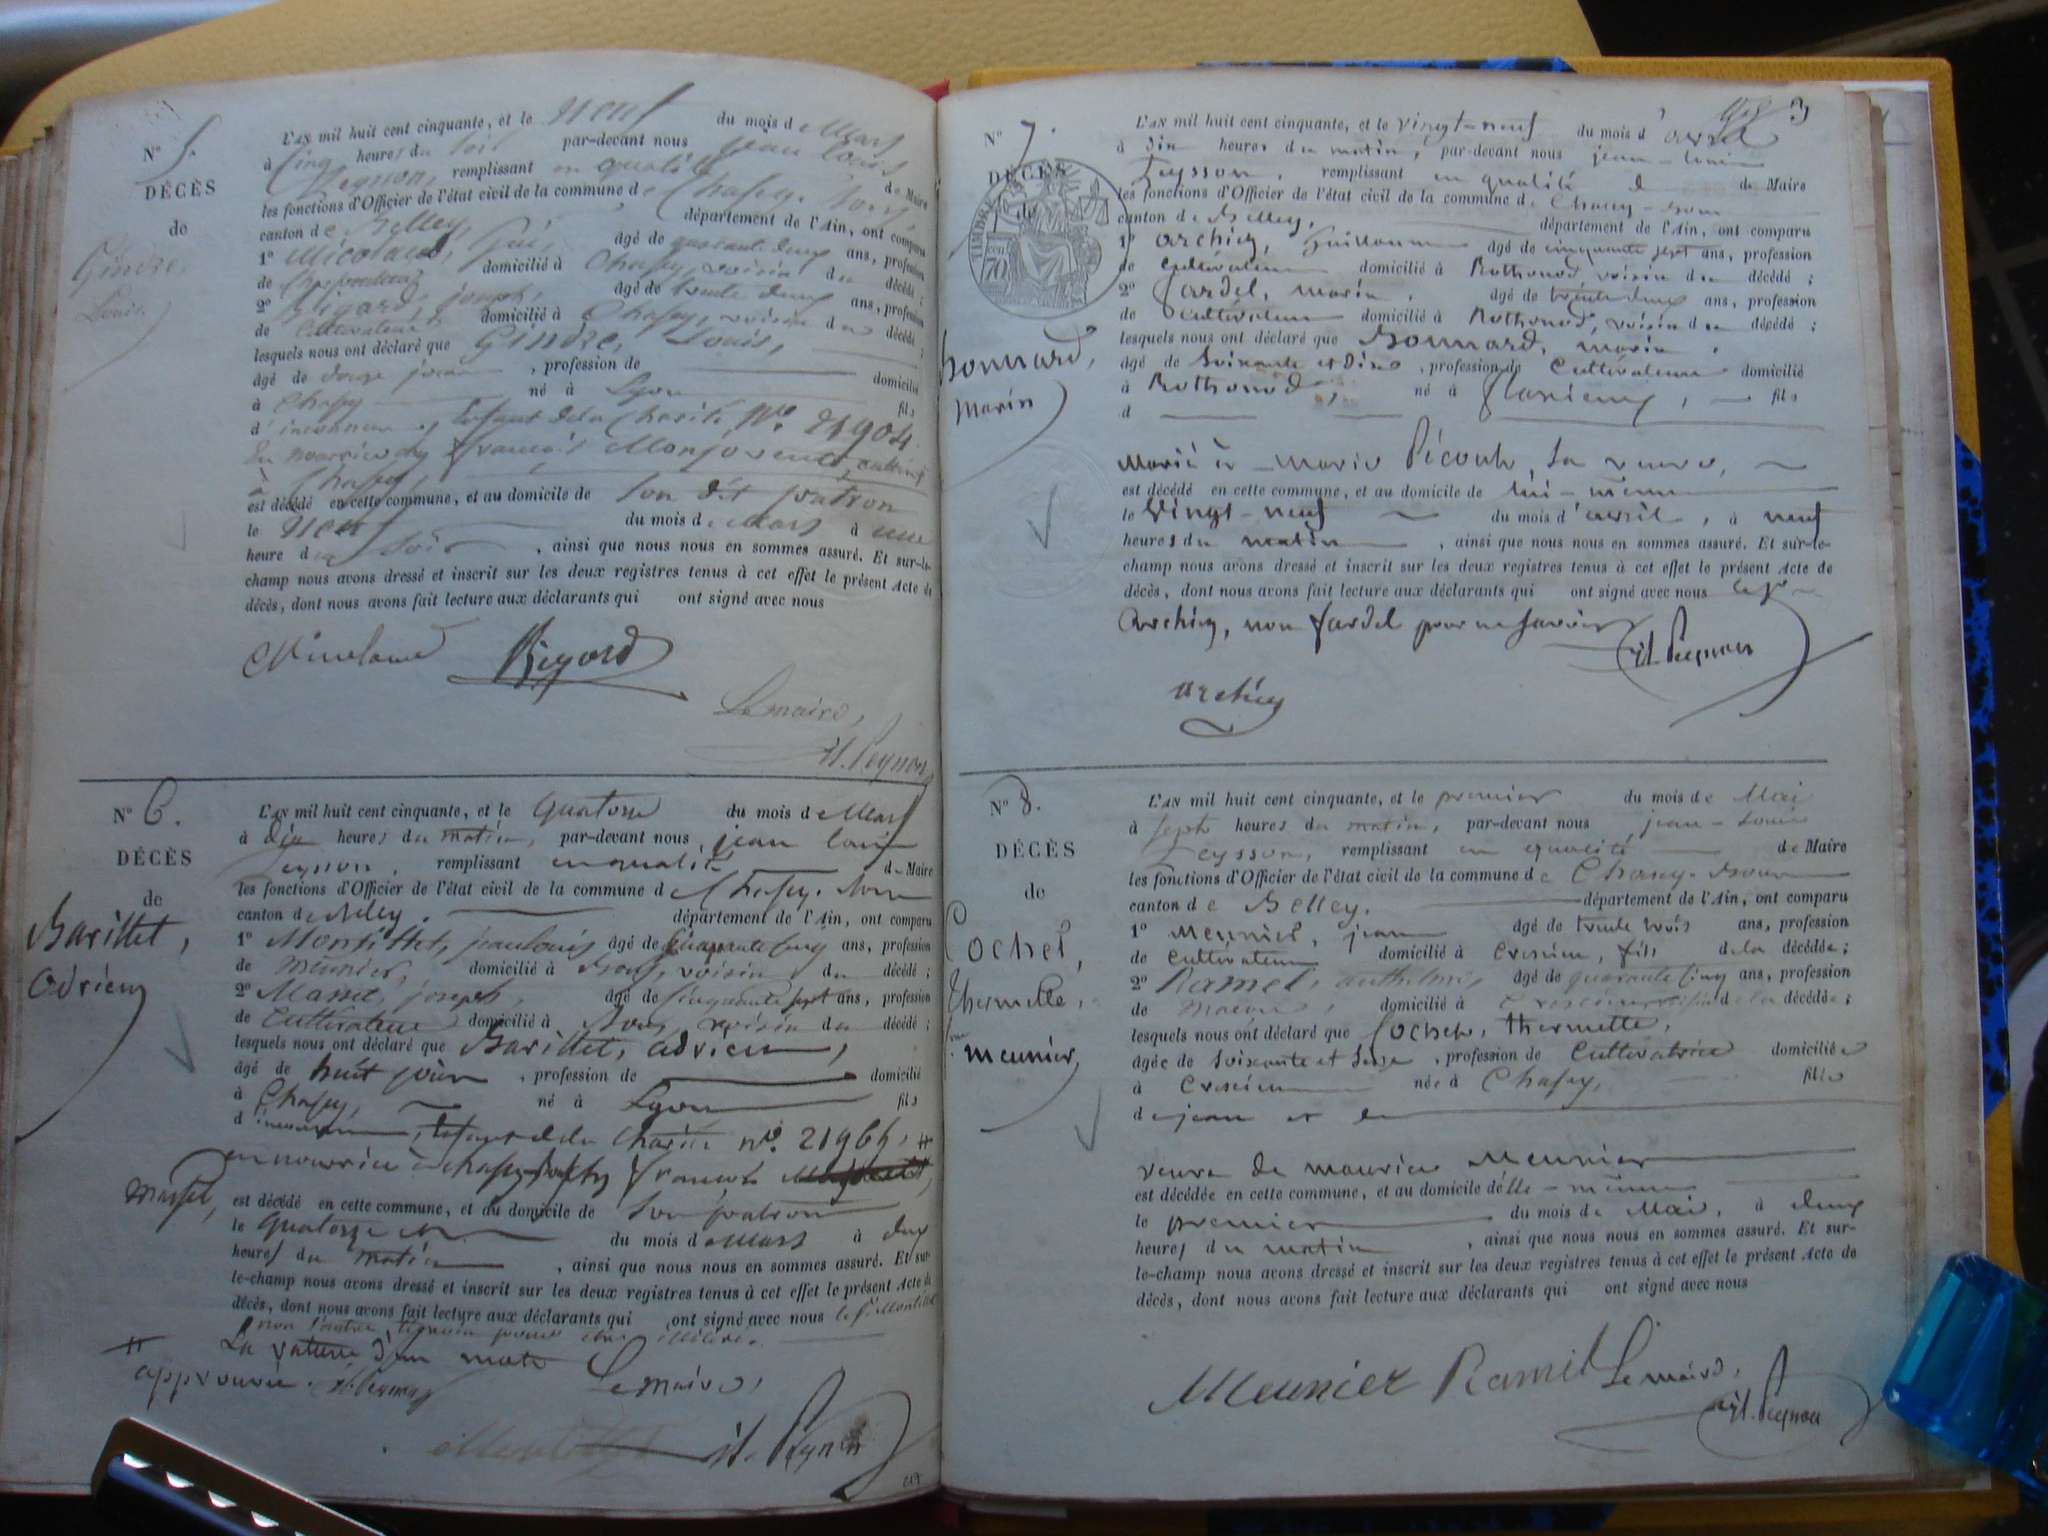 N° 5.
DÉCÈS
de
Gindre,
Louis
L'AN mil huit cent cinquante, et le neuf du mois de Mars
à cinq heures du soir par-devant nous jean louis
Peysson, remplissant en qualité de Maire
les fonctions d'Officier de l'état civil de la commune de Chasey-
canton de Belley, département de l'Ain, ont comparu
1° âgé de quarante deux ans, profession
de domicilié à Chasey, voisin du décédé ;
2° joseph, âgé de trente deux ans, profession
de Cultivateur domicilié à Chasey, voisin du décédé ;
lesquels nous ont déclaré que Gindre, Louis,
âgé de jours , profession de domicilié
à Chasey né à Lyon fils
d'inconnu, Enfant de la Charité N°. 21904.
En nourrice chez François
à Chasey,
est décédé en cette commune, et au domicile de son dit patron
le neuf du mois de Mars à une
heure du soir , ainsi que nous nous en sommes assuré. Et sur-le-
champ nous avons dressé et inscrit sur les deux registres tenus à cet effet le présent Acte de
décès, dont nous avons fait lecture aux déclarants qui ont signé avec nous
Le maire,
Peysson
N° 6.
DÉCÈS
de
Barillet,
adrien
L'AN mil huit cent cinquante, et le quatorze du mois de Mars
à dix heures du matin, par-devant nous jean louis
Peysson, remplissant en qualité de Maire
les fonctions d'Officier de l'état civil de la commune de Chasey-
canton de Belley. département de l'Ain, ont comparu
1° jean louis âgé de quarante cinq ans, profession
de meunier, domicilié à voisin du décédé ;
2° joseph, âgé de cinquante sept ans, profession
de Cultivateur domicilié à voisin du décédé ;
lesquels nous ont déclaré que Barillet, adrien,
âgé de huit jours , profession de domicilié
à Chasey, né à Lyon fils
d'inconnu, Enfant de la Charité n°.
en nourrice à chasey françois
est décédé en cette commune, et au domicile de son patron
le quatorze du mois de Mars à deux
heures du matin , ainsi que nous nous en sommes assuré. Et sur-
le-champ nous avons dressé et inscrit sur les deux registres tenus à cet effet le présent Acte de
décès, dont nous avons fait lecture aux déclarants qui ont signé avec nous le
La rature d'un mot
approuvée.
Le maire,
Peysson
N° 7.
DÉCÈS
de
TIMBRE
70
Bonnard,
Marin
L'AN mil huit cent cinquante, et le vingt-neuf du mois d'avril
à dix heures du matin, par-devant nous jean-louis
Peysson, remplissant en qualité de Maire
les fonctions d'Officier de l'état civil de la commune de Chasey-
canton de Belley, département de l'Ain, ont comparu
1° archiey, Guillaume âgé de cinquante sept ans, profession
de cultivateur domicilié à Rothonod voisin du décédé ;
2° Jardel, marin, âgé de trente deux ans, profession
de cultivateur domicilié à Rothonod, voisin du décédé ;
lesquels nous ont déclaré que Bonnard, marin,
âgé de soixante et dix , profession de cultivateur domicilié
à Rothonod, né à fils
d
Marié à marie sa veuve,
est décédé en cette commune, et au domicile de lui-même
le vingt-neuf du mois d'avril, à neuf
heures du matin , ainsi que nous nous en sommes assuré. Et sur-le-
champ nous avons dressé et inscrit sur les deux registres tenus à cet effet le présent Acte de
décès, dont nous avons fait lecture aux déclarants qui ont signé avec nous le
archiey, non Jardel pour ne savoir
Peysson
archiey
N° 8.
DÉCÈS
de
Cochet,
thermette,
meunier
L'AN mil huit cent cinquante, et le premier du mois de Mai
à sept heures du matin, par-devant nous jean-louis
Peysson, remplissant en qualité de Maire
les fonctions d'Officier de l'état civil de la commune de Chasey-
canton de Belley. département de l'Ain, ont comparu
1° meunier, jean âgé de trente trois ans, profession
de cultivateur domicilié à fils de la décédée ;
2° Ramel, anthelme, âgé de quarante cinq ans, profession
de maçon, domicilié à de la décédée ;
lesquels nous ont déclaré que Cochet, thermette,
âgée de soixante et seize , profession de cultivatrice domiciliée
à née à Chasey, fille
de jean et de
veuve de maurice meunier
est décédée en cette commune, et au domicile d'elle-même
le premier du mois de Mai, à deux
heures du matin , ainsi que nous nous en sommes assuré. Et sur-
le-champ nous avons dressé et inscrit sur les deux registres tenus à cet effet le présent Acte de
décès, dont nous avons fait lecture aux déclarants qui ont signé avec nous
Meunier Ramel Le maire,
Peysson